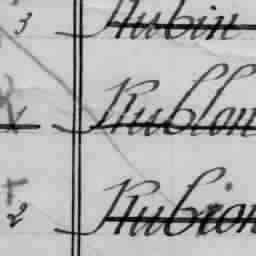 3 Rubin
Rublon
2 Rubion